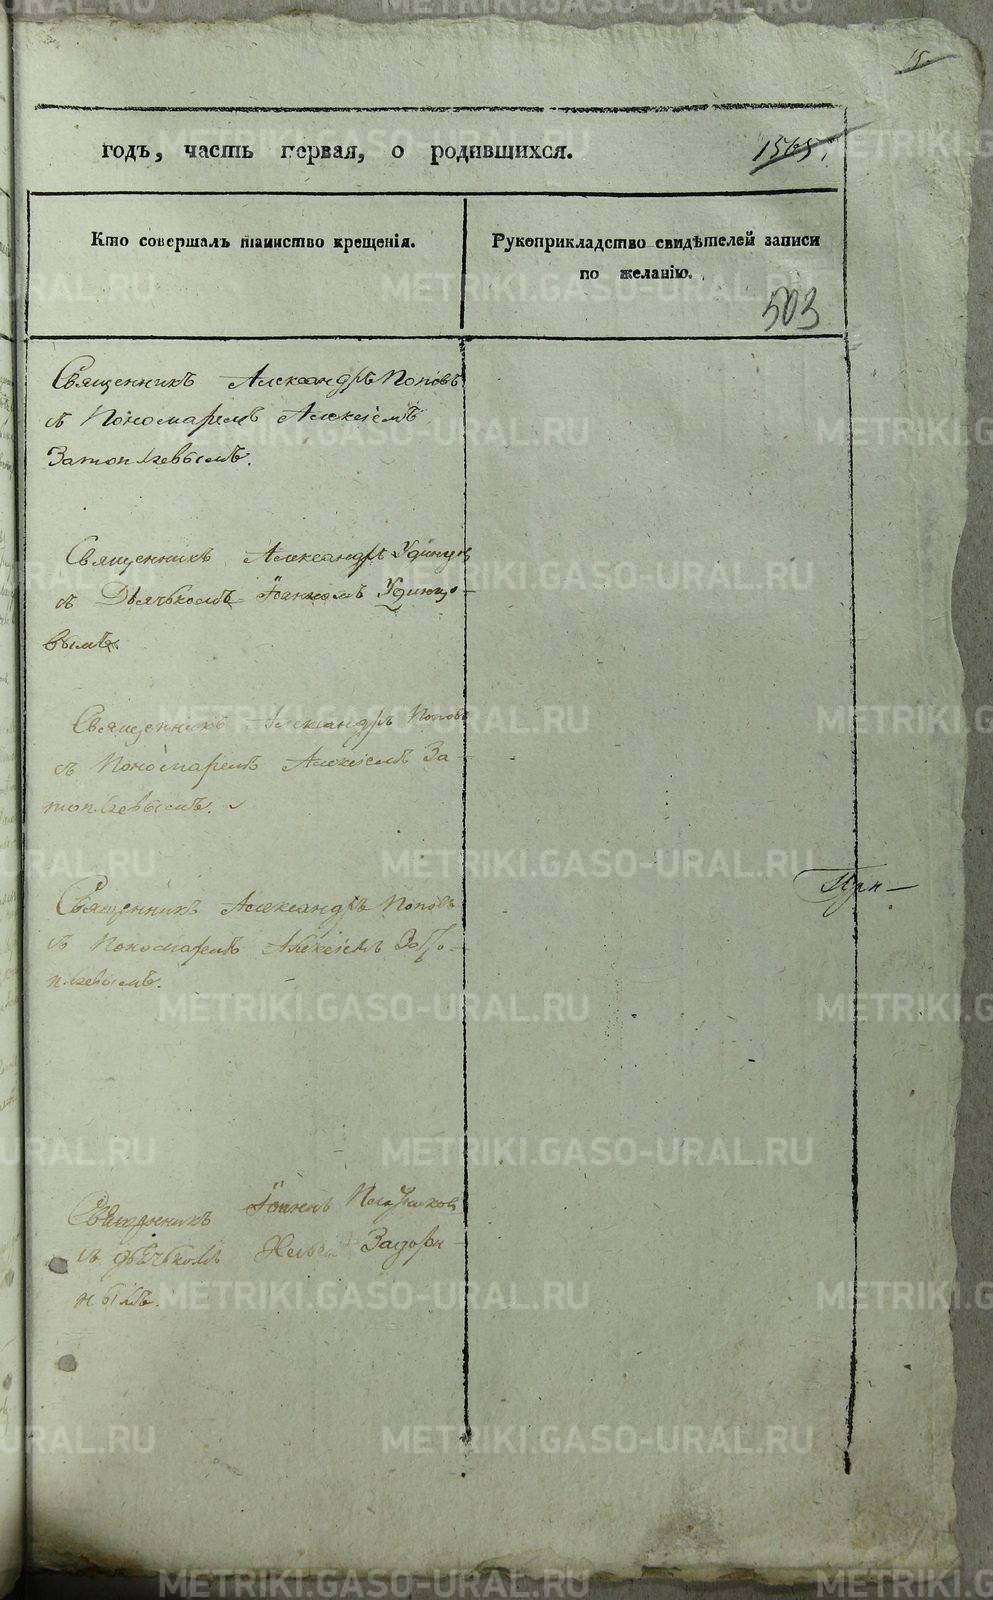 15.
годъ, часть первая, о родившихся.
1565.
Кто совершалъ таинство крещенія.
Рукоприкладство свидѣтелей записи
по желанію.
503
Священникъ Александръ Поповъ
съ Пономаремъ Алексіемъ
Затопляевымъ.
Священникъ Александръ Удинцов
съ Дьячькомъ Іоанномъ Удинцо-
вымъ.
Священникъ Александръ Поповъ
съ Пономаремъ Алексіемъ За
топляевымъ.
Священникъ Александръ Поповъ
съ Пономаремъ Алексіемъ Зато-
пляевымъ.
При-
Священникъ Іоаннъ
съ дьячькомъ Задори-
нымъ.
METRIKI.GASO-URAL.RU